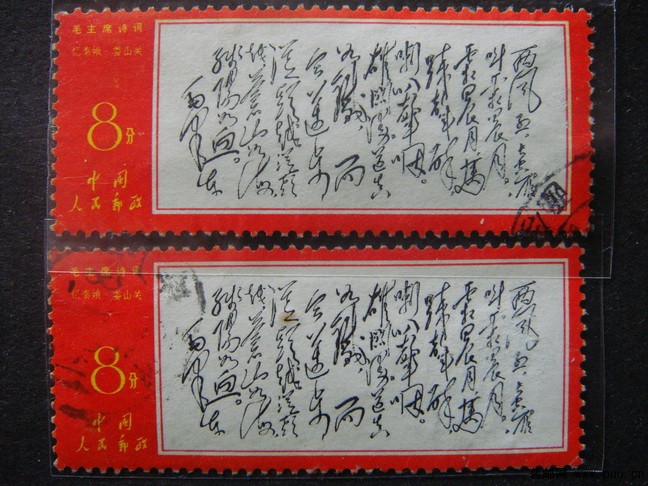 毛主席诗词
忆秦娥·娄山关
8分
中国
人民邮政
西风烈,长空雁
叫霜晨月。
霜晨月,马
蹄声碎,
喇叭声咽。
雄关漫道真
如铁,而
今迈步
从头越。从头
越,苍山如海,
残阳如血。
毛泽东
毛主席诗词
忆秦娥·娄山关
8分
中国
人民邮政
西风烈,长空雁
叫霜晨月。
霜晨月,马
蹄声碎,
喇叭声咽。
雄关漫道真
如铁,而
今迈步
从头越。从头
越,苍山如海,
残阳如血。
毛泽东